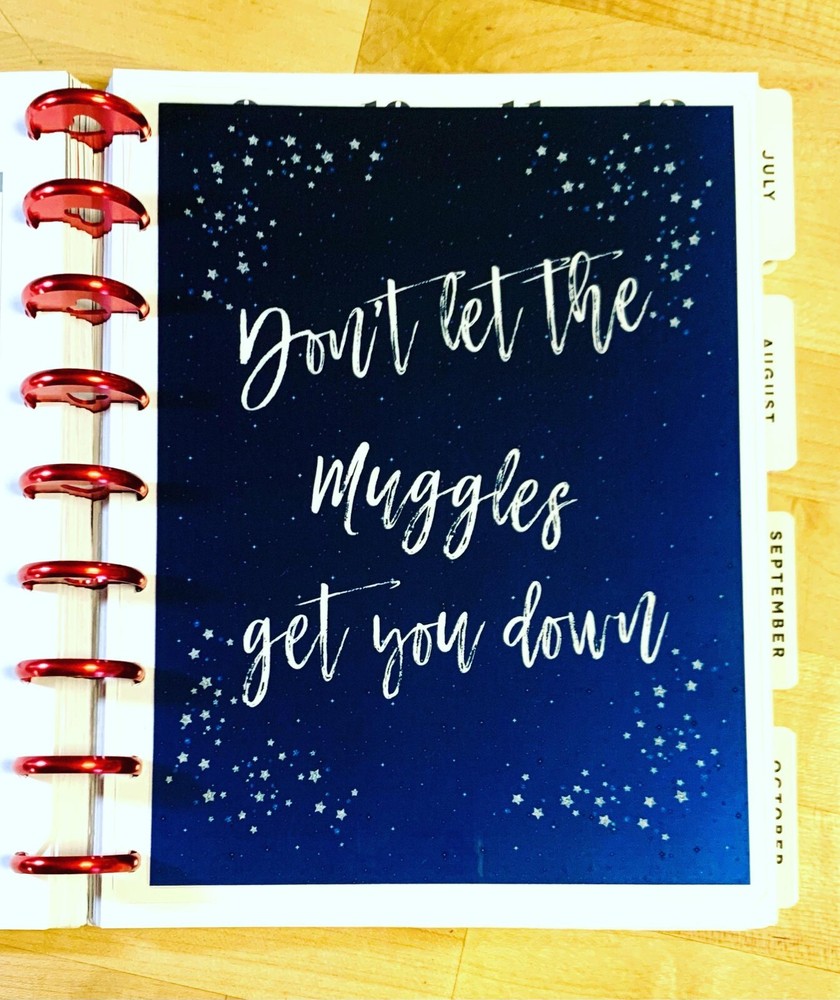 Don't let the
Muggles
get you down
JULY
AUGUST
SEPTEMBER
OCTOBER